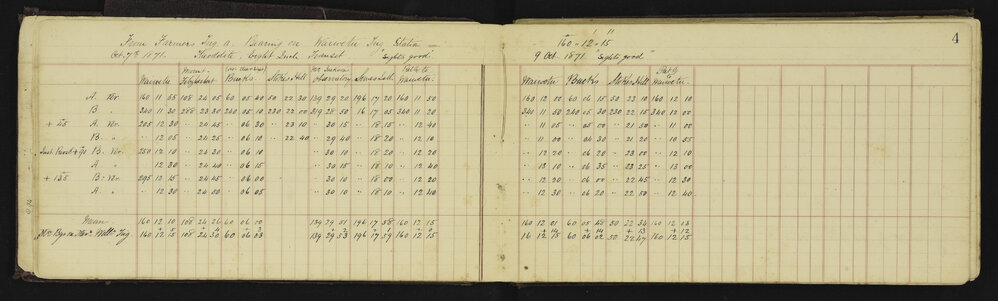 From Farmers Trig. a. Bearing on Waiwetu Trig Station —
Oct. 7th 1871. Theodolite, Eight Inch Transit "Sights good"
Waiwetu Buck's Stokes Hill Observatory Jones's Hill Waiwetu
A. Ver. 160 11 55 108 24 05 60 05 40 50 22 30 139 29 20 196 17 20 160 11 50
B. " 340 11 30 288 23 30 240 05 10 230 22 00 319 28 50 16 17 05 340 11 20
+ 45 A. Ver. 205 12 30 " 24 45 " 06 30 " 23 10 " 30 15 " 18 15 " 12 40
B. " " 12 05 " 24 25 " 06 10 " 22 40 " 29 40 " 18 20 " 12 10
B. Ver. 250 12 10 " 24 30 " 06 10 " 30 10 " 18 20 " 12 20
A. " " 12 30 " 24 40 " 06 15 " 30 15 " 18 10 " 12 40
+ 135 B. Ver. 295 12 15 " 24 45 " 06 10 " 30 10 " 18 10 " 12 30
A. " " 12 30 " 24 50 " 06 05 " 30 10 " 18 10 " 12 40
Mean 160 12 10 108 24 26 60 06 00 139 29 51 196 17 58 160 12 15
Trig 160 12 15 108 24 30 60 06 03 139 29 53 196 17 59 160 12 15
4
160 - 12 - 15
9 Oct. 1871 "Sights good"
Waiwetu Buck's Stokes Hill Waiwetu
160 12 00 60 06 15 50 23 10 160 12 10
340 11 50 240 05 30 230 22 15 340 12 00
" 11 05 " 05 00 " 21 50 " 11 00
" 11 00 " 04 30 " 21 20 " 10 55
" 12 20 " 06 20 " 23 00 " 12 10
" 13 00 " 06 35 " 23 25 " 13 00
" 12 20 " 06 00 " 22 45 " 12 30
" 12 30 " 06 20 " 22 50 " 12 40
160 12 01 60 05 48 50 22 34 160 12 03
+ 14 + 14 + 13 + 12
16 12 15 60 06 02 50 22 47 160 12 15